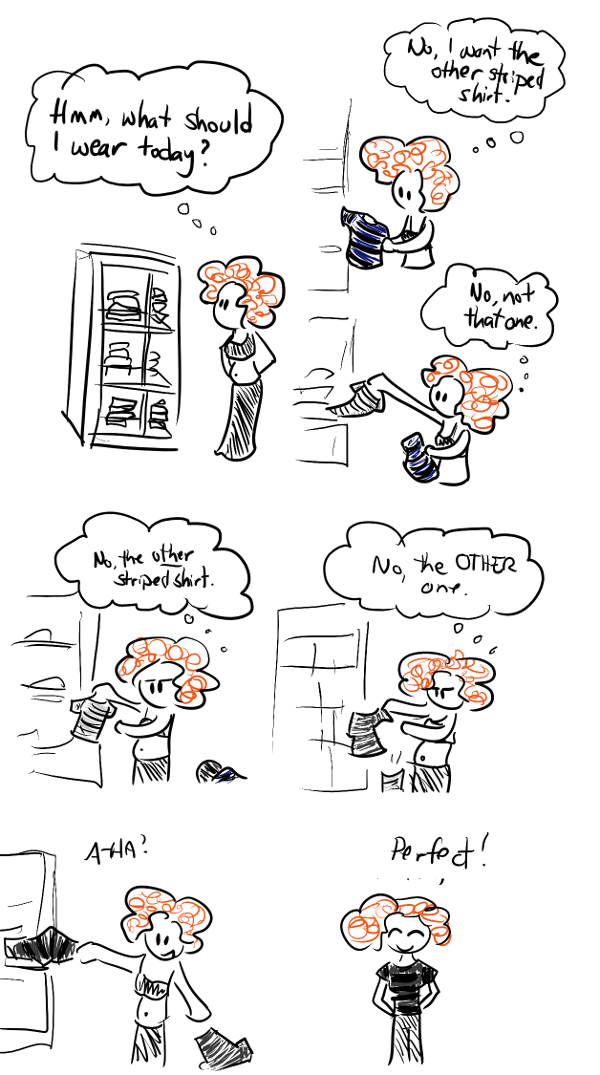 Hmm, what should
I wear today?
No, I want the
other striped
shirt.
No, not
that one.
No, the other
striped shirt.
No, the OTHER
one.
A-HA!
Perfect!